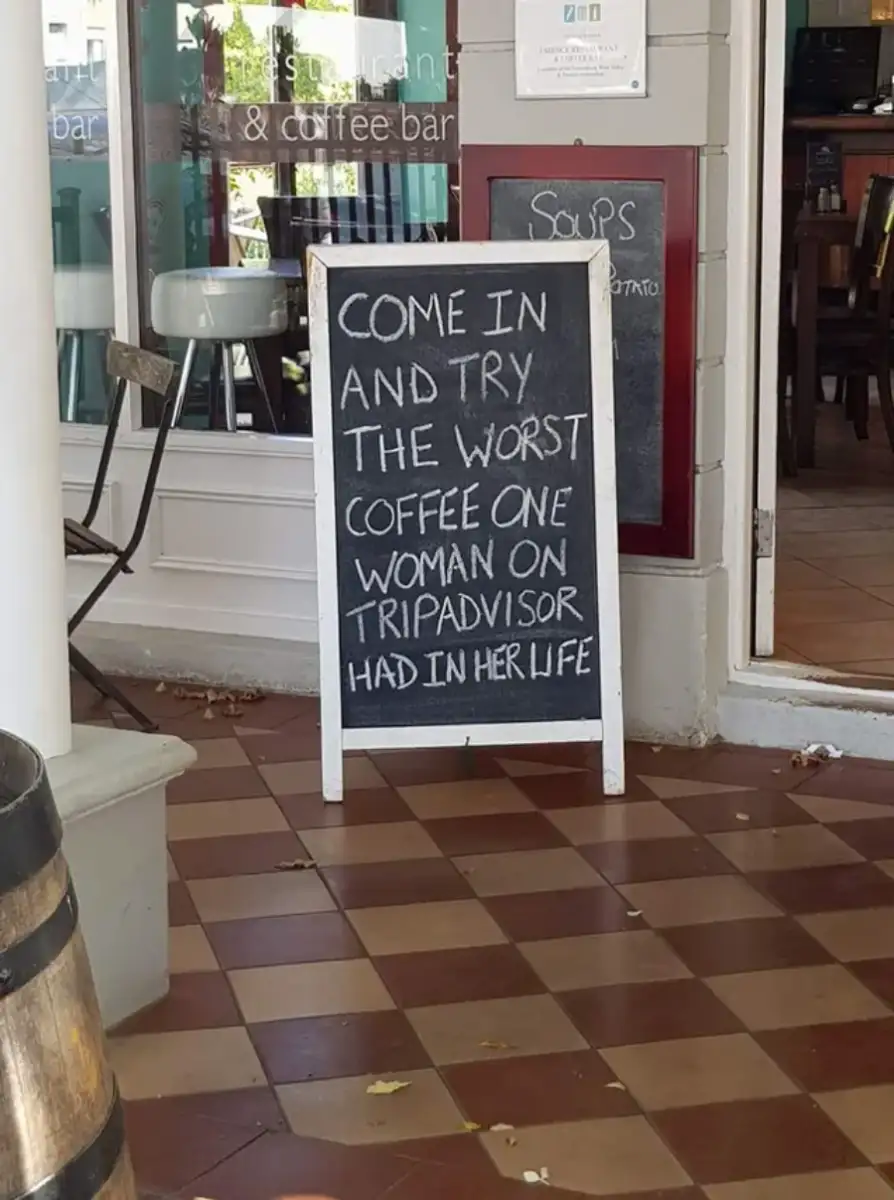 restaurant
bar
& coffee bar
SOUPS
POTATO
COME IN
AND TRY
THE WORST
COFFEE ONE
WOMAN ON
TRIPADVISOR
HAD IN HER LIFE